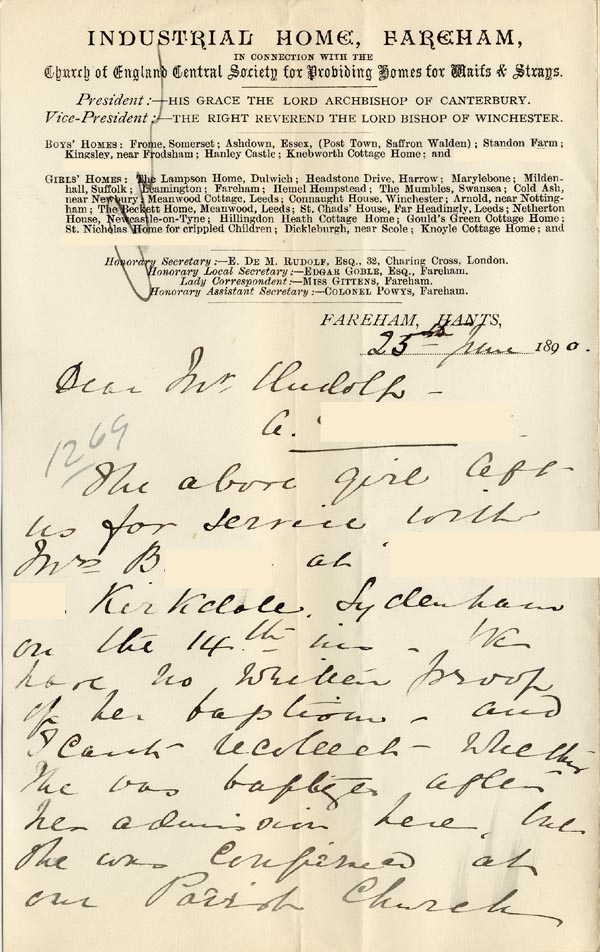 INDUSTRIAL HOME, FAREHAM,
IN CONNECTION WITH THE
Church of England Central Society for Providing Homes for Waifs & Strays.
President:—HIS GRACE THE LORD ARCHBISHOP OF CANTERBURY.
Vice-President:—THE RIGHT REVEREND THE LORD BISHOP OF WINCHESTER.
BOYS' HOMES: Frome, Somerset; Ashdown, Essex, (Post Town, Saffron Walden); Standon Farm;
Kingsley, near Frodsham; Hanley Castle; Knebworth Cottage Home; and
GIRLS' HOMES: The Lampson Home, Dulwich; Headstone Drive, Harrow; Marylebone; Milden-
hall, Suffolk; Leamington; Fareham; Hemel Hempstead; The Mumbles, Swansea; Cold Ash,
near Newbury; Meanwood Cottage, Leeds; Connaught House, Winchester; Arnold, near Notting-
ham; The Beckett Home, Meanwood, Leeds; St. Chads' House, Far Headingly, Leeds; Netherton
House, Newcastle-on-Tyne; Hillingdon Heath Cottage Home; Gould's Green Cottage Home;
St. Nicholas Home for crippled Children; Dickleburgh, near Scole; Knoyle Cottage Home; and
Honorary Secretary:—E. DE M. RUDOLF, ESQ., 32, Charing Cross, London.
Honorary Local Secretary:—EDGAR GOBLE, ESQ., Fareham.
Lady Correspondent:—MISS GITTENS, Fareham.
Honorary Assistant Secretary:—COLONEL POWYS, Fareham.
FAREHAM, HANTS,
25th June 1890.
Dear Mr Rudolf –
A.
1269
The above girl left
us for service with
Mrs B at
. Kirkdale, Sydenham
on the 14th ins – We
have no written proof
of her baptism – and
I cant recollect – whether
she was baptized after
her admission here, but
she was confirmed at
our Parish Church